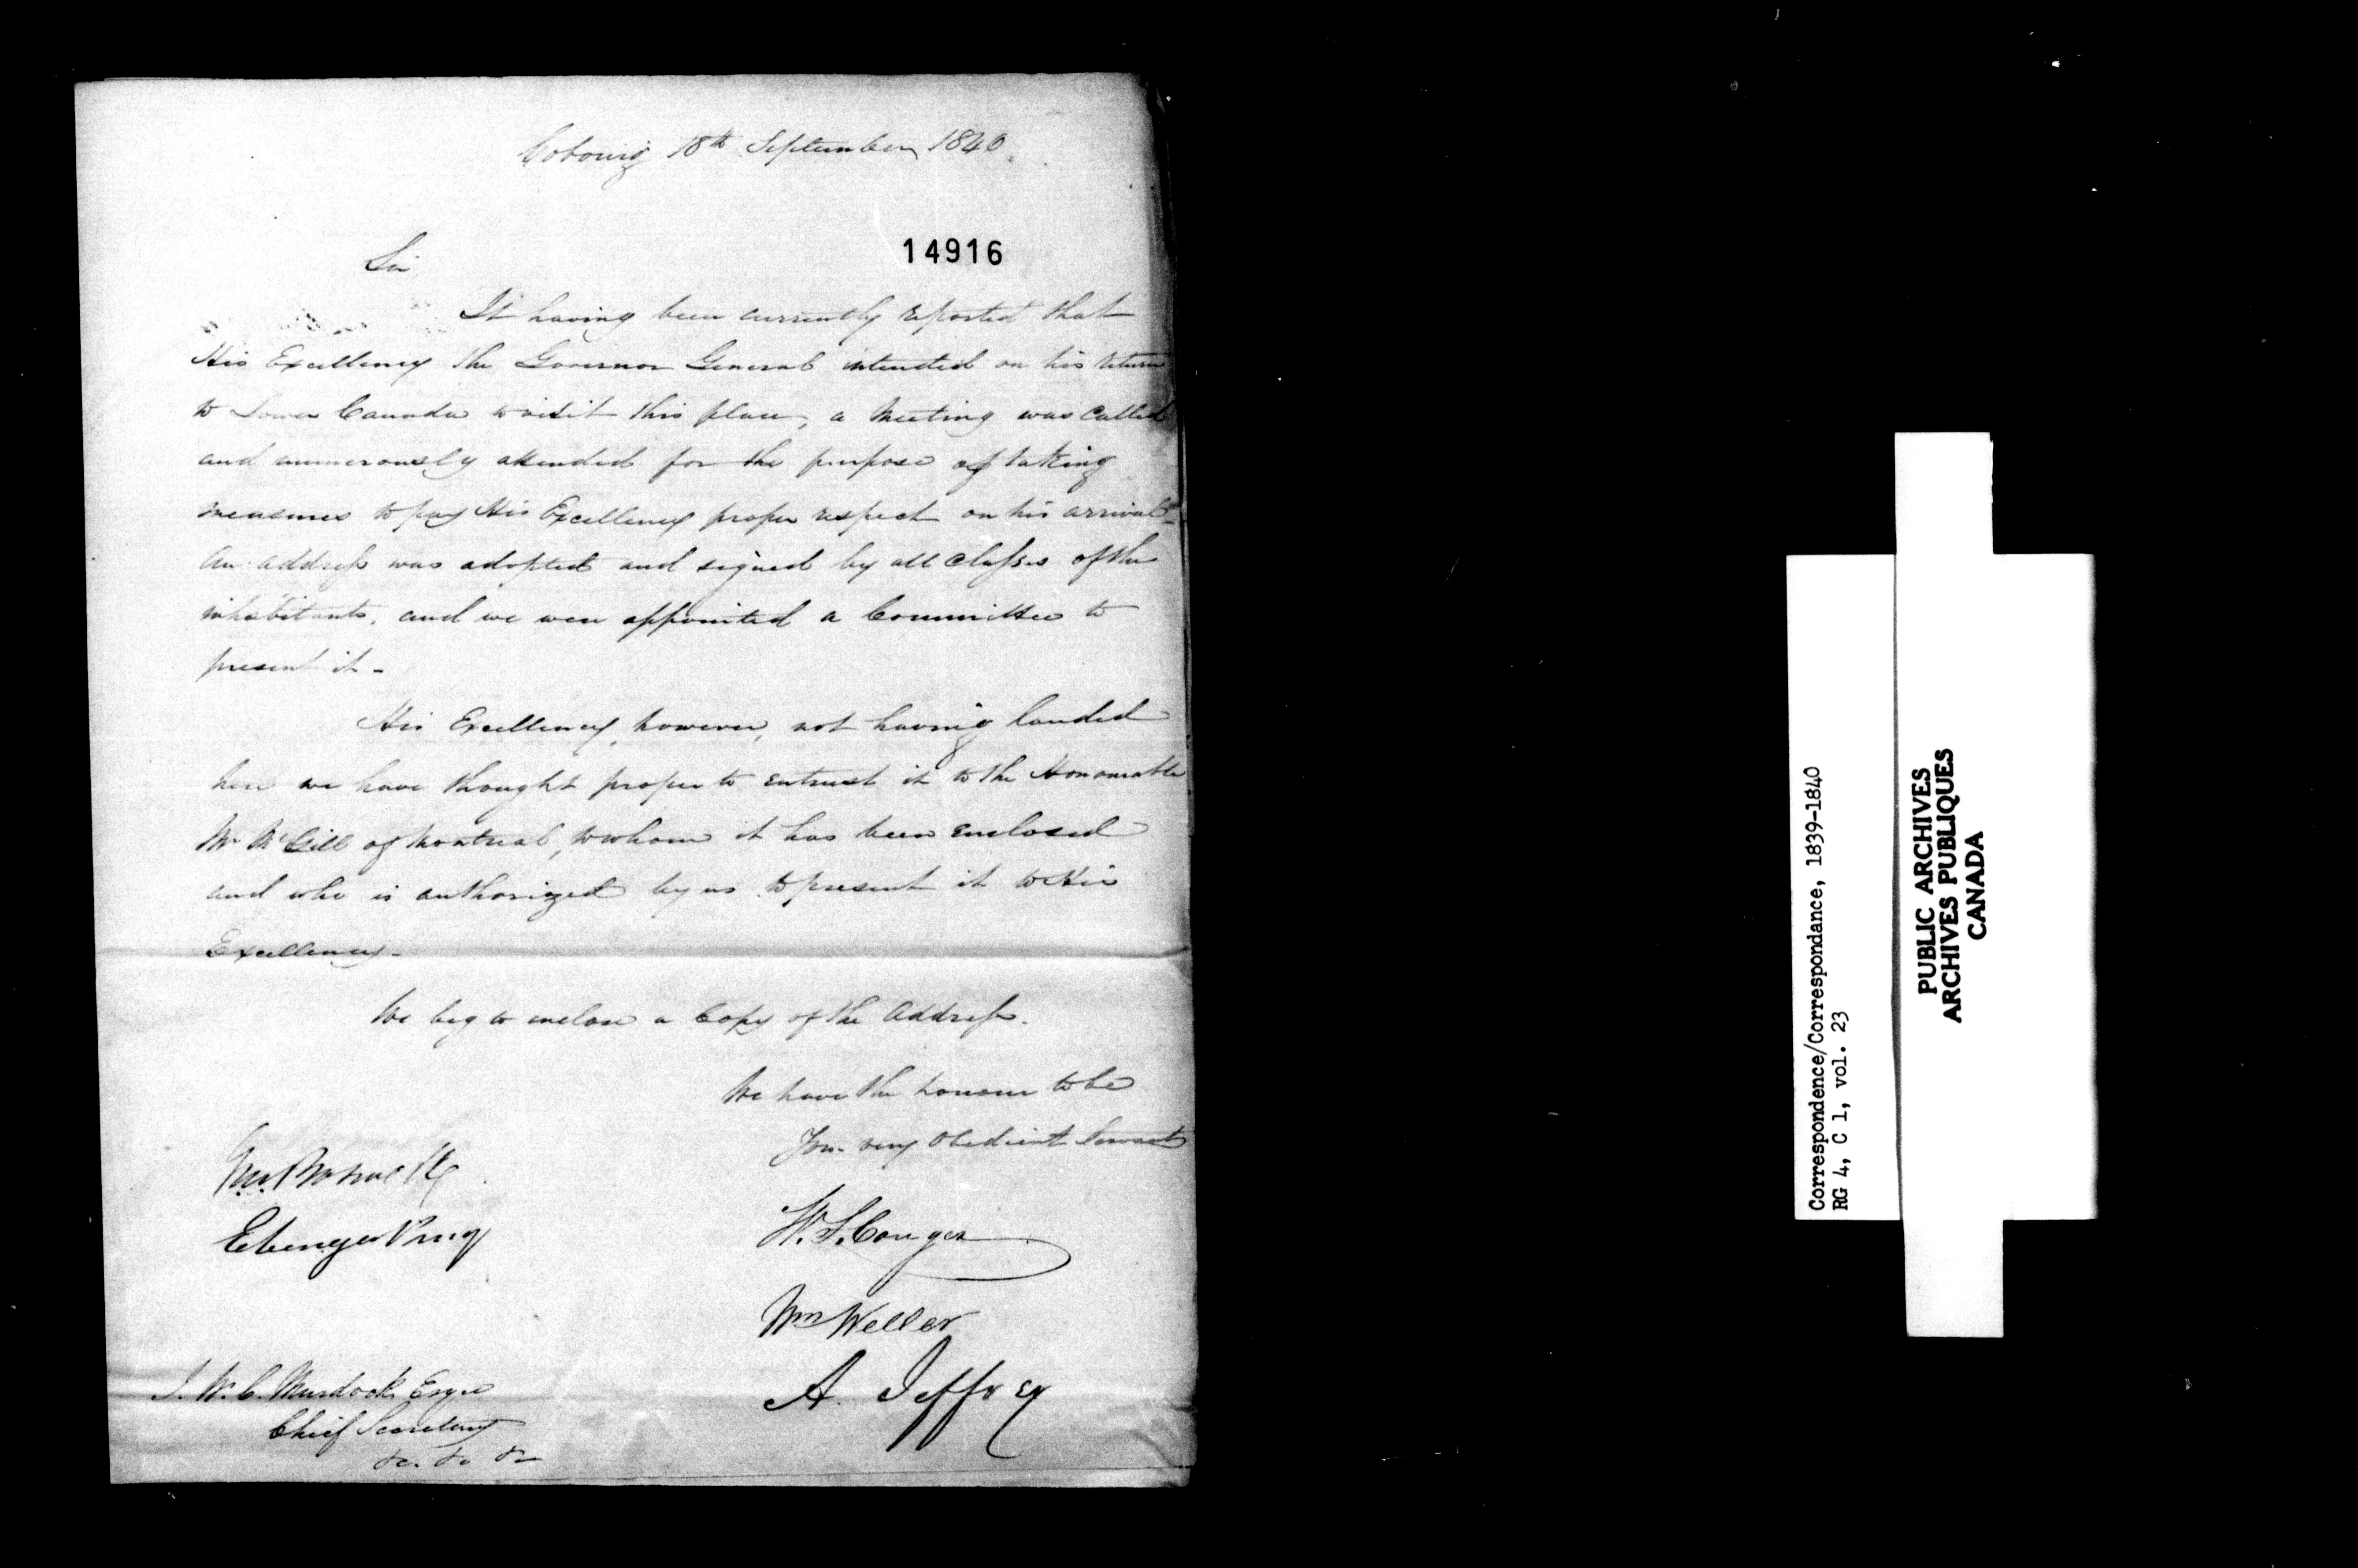 Cobourg 18th September 1840.
14916
Sir
It having been currently reported that
His Excellency the Governor General intended on his return
to Lower Canada to visit this place, a Meeting was called
and numerously attended for the purpose of taking
measures to pay His Excellency proper respect on his arrival -
An address was adopted and signed by all Classes of the
inhabitants, and we were appointed a Committee to
present it -
His Excellency, however, not having landed
here we have thought proper to entrust it to the Honourable
Mr McGill of Montreal, to whom it has been enclosed
and who is authorized by us to present it to His
Excellency -
We beg to enclose a Copy of the Address.
We have the honour to be
Your very Obedient Servants
Ebenezer Perry
W. S. Conger
Wm Weller
A. Jeffrey
T. W. C. Murdock Esqre
Chief Secretary
&c. &c &c
Correspondence/Correspondance, 1839-1840
RG 4, C 1, vol. 23
PUBLIC ARCHIVES
ARCHIVES PUBLIQUES
CANADA